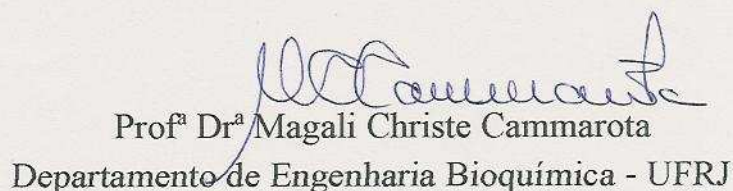 MCCammarota
Profª Drª Magali Christe Cammarota
Departamento de Engenharia Bioquímica - UFRJ